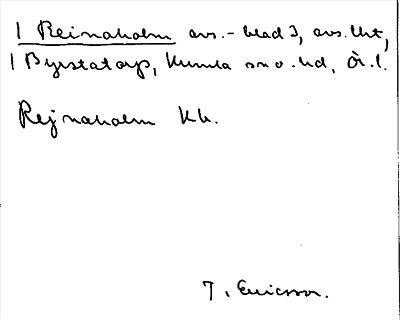 1 Reinaholm avs.-blad 3, avs. lht,
1 Byrstatorp, Kumla sn o. hd, Ör. l.
Rejnaholm Kk.
T. Ericsson.